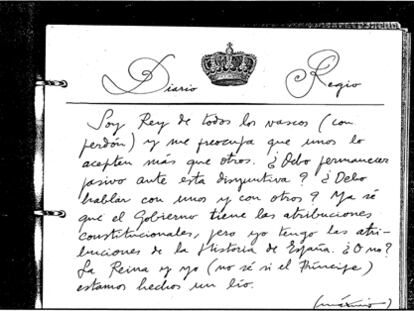 Diario Regio
Soy Rey de todos los vascos (con
perdón) y me preocupa que unos lo
acepten más que otros. ¿Debo permanecer
pasivo ante esta disyuntiva? ¿Debo
hablar con unos y con otros? Ya sé
que el Gobierno tiene las atribuciones
constitucionales, pero yo tengo las atri-
buciones de la Historia de España. ¿O no?
La Reina y yo (no sé si el Príncipe)
estamos hechos un lío.
(máximo)